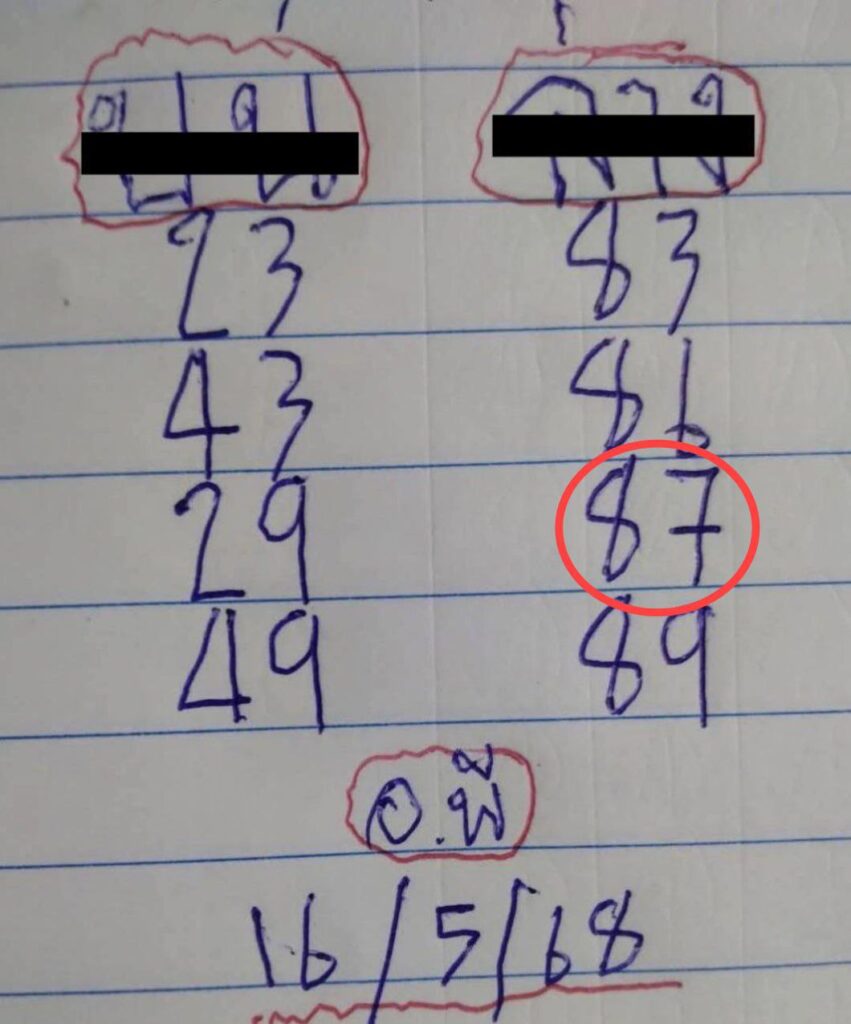 23 83
43 86
29 87
49 89
อ.พี
16/5/68